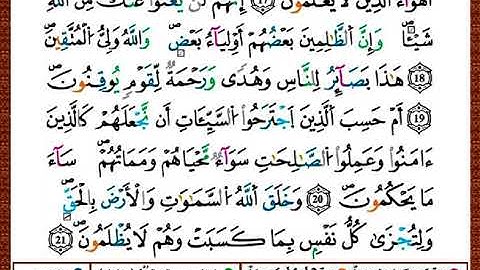 أَهْوَآءَ اَ۬لذِينَ لَا يَعْلَمُونَۖ 17 إِنَّهُمْ لَنْ يُّغْنُواْ عَنكَ مِنَ اَ۬للَّهِ
شَيْـٔاٗۖ وَإِنَّ اَ۬لظَّٰلِمِينَ بَعْضُهُمُۥٓ أَوْلِيَآءُ بَعْضٖۖ وَاللَّهُ وَلِيُّ اُ۬لْمُتَّقِينَۖ
18 هَٰذَا بَصَٰٓئِرُ لِلنَّاسِ وَهُدىٗ وَرَحْمَةٞ لِّقَوْمٖ يُوقِنُونَۖ
19 أَمْ حَسِبَ اَ۬لذِينَ اَ۪جْتَرَحُواْ اُ۬لسَّيِّـَٔاتِ أَن نَّجْعَلَهُمْ كَالذِينَ
ءَامَنُواْ وَعَمِلُواْ اُ۬لصَّٰلِحَٰتِ سَوَآءٞ مَّحْيَاهُمْ وَمَمَاتُهُمْۖ سَآءَ
مَا يَحْكُمُونَۖ 20 وَخَلَقَ اَ۬للَّهُ اُ۬لسَّمَٰوَٰتِ وَالْأَرْضَ بِالْحَقِّۖ
وَلِتُجْزَىٰ كُلُّ نَفْسِۢ بِمَا كَسَبَتْ وَهُمْ لَا يُظْلَمُونَۖ 21